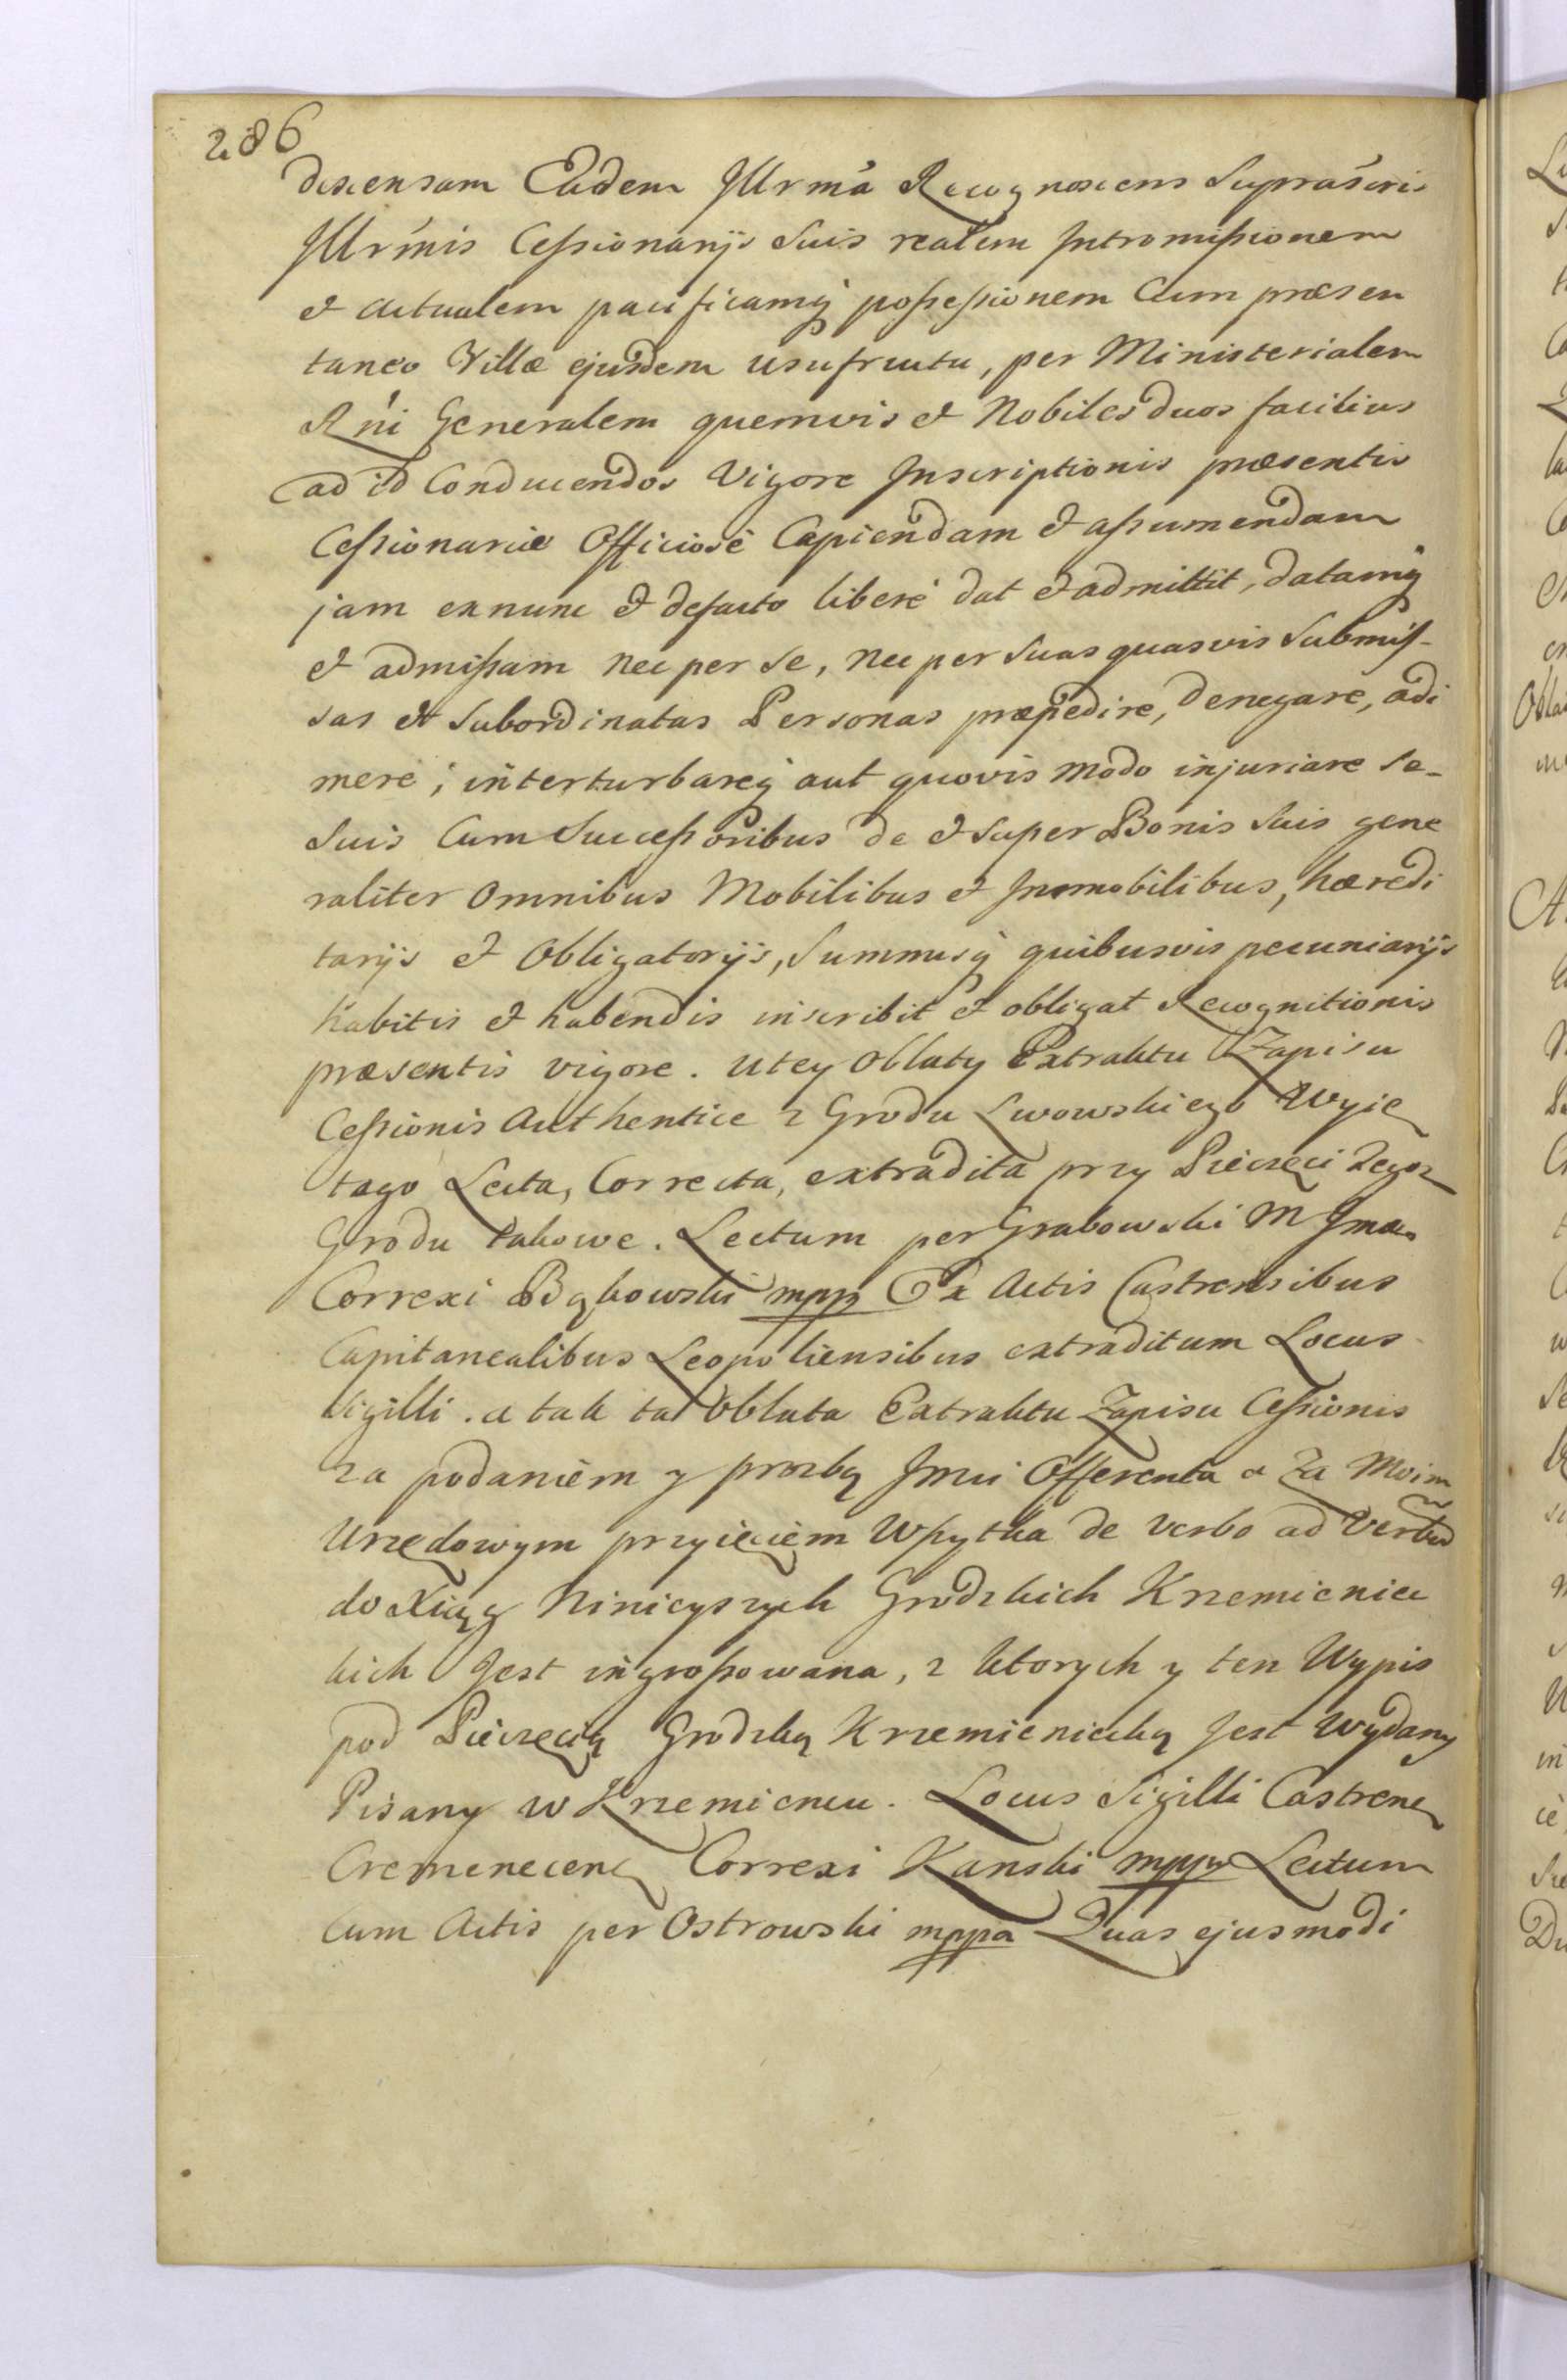 286
descensam Eadem Jllrma Recognoscens Suprascris
Jllrmis Cessionarijs Suis realem Intromissionem
et Actualem pacificamq possessionem Cum præsen
taneo Villæ ejusdem usufructu, per Ministerialem
Rni Generalem quemvis et Nobiles duos facilius
ad id Conducendos Vigore Inscriptionis præsentis
Cessionariæ Officiosè Capiendam et assumendam
jam exnunc et defacto liberè dat et admittit, datamq
et admissam nec per Se, nec per Suas quasvis Submis-
sas et Subordinatas Personas præpedire, denegare, adi
mere, interturbareq aut quovis modo injuriare Se-
Suis Cum Successoribus de et Super Bonis Suis gene
raliter Omnibus Mobilibus et Immobilibus, hæredi
tarijs et Obligatorijs, Summisq quibusvis pecuniarijs
habitis et habendis inscribit et obligat Recognitionis
præsentis vigore. Utey Oblaty Extraktu Zapisu
Cessionis Authentice z Grodu Lwowskiego Wyię
tago Lecta, Correcta, extradita przy Pieczęci Tegoz
Grodu takowe. Lectum per Grabowski M Jmæ.
Correxi Bąkowski mpp Ex Actis Castrensibus
Capitanealibus Leopoliensibus extraditum Locus
Sigilli. a tak ta Oblata Extraktu Zapisu Cessionis
za podaniem y prozbą Jmci Offerenta a Za Moim
Urzędowym przyięciem Wszytka de verbo ad Verbũ
do Xiąg Ninieyszych Grodzkich Krzemieniec
kich Jest ingrossowana, z ktorych y ten Wypis
pod Pieczęcią Grodzką Krzemieniecką Jest Wydany
Pisany w Krzemiencu. Locus Sigilli Castrens
Cremenecens Correxi Kanski mppr Lectum
Cum Actis per Ostrowski mppa Quas ejusmodi